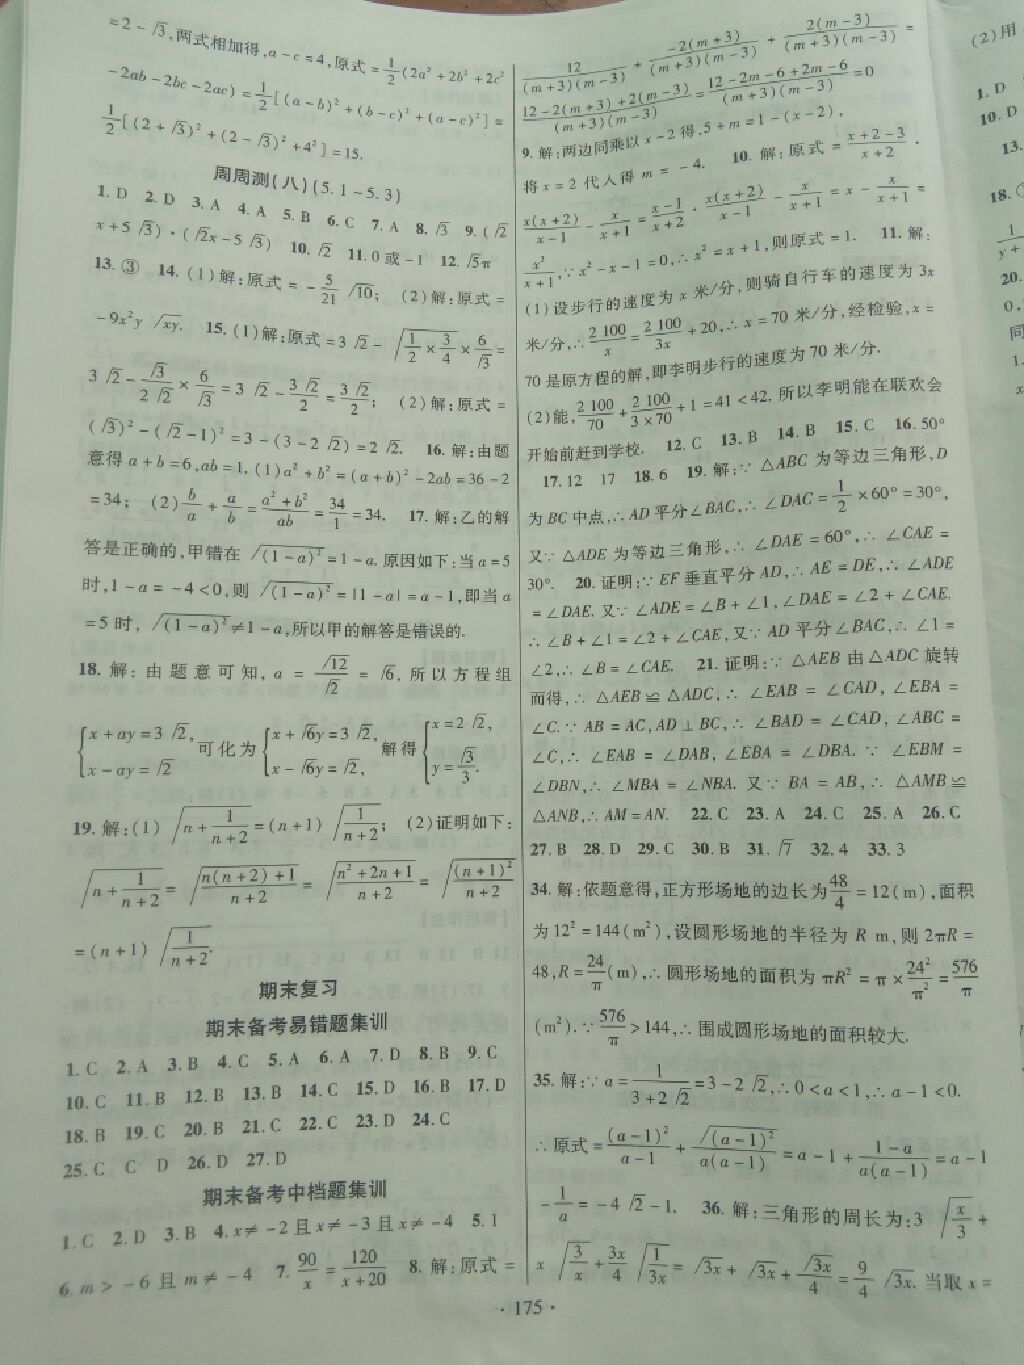 =2-√3,两式相加得,a-c=4,原式=1/2(2a²+2b²+2c²
-2ab-2bc-2ac)=1/2[(a-b)²+(b-c)²+(a-c)²]=
1/2[(2+√3)²+(2-√3)²+4²]=15.
周周测(八)(5.1-5.3)
1. D 2. D 3. A 4. A 5. B 6. C 7. A 8. √3 9. (√2
x+5√3)·(√2x-5√3) 10. √2 11. 0或-1 12. √5π
13. ③ 14. (1)解:原式=-5/21√10; (2)解:原式=
-9x²y√xy. 15. (1)解:原式=3√2-√(1/2×3/4)×6/√3=
3√2-√3/(2√2)×6/√3=3√2-3√2/2=3√2/2; (2)解:原式=
(√3)²-(√2-1)²=3-(3-2√2)=2√2. 16. 解:由题
意得a+b=6,ab=1.(1)a²+b²=(a+b)²-2ab=36-2
=34; (2)b/a+a/b=(a²+b²)/ab=34/1=34. 17. 解:乙的解
答是正确的,甲错在√(1-a)²=1-a.原因如下:当a=5
时,1-a=-4<0,则√(1-a)²=|1-a|=a-1,即当a
=5时,√(1-a)²≠1-a,所以甲的解答是错误的.
18. 解:由题意可知,a=√12/√2=√6,所以方程组
{x+ay=3√2, x-ay=√2 可化为 {x+√6y=3√2, x-√6y=√2, 解得 {x=2√2, y=√3/3.
19. 解:(1)√(n+1/(n+2))=(n+1)√(1/(n+2)); (2)证明如下:
√(n+1/(n+2))=√((n(n+2)+1)/(n+2))=√((n²+2n+1)/(n+2))=√((n+1)²/(n+2))
=(n+1)√(1/(n+2)).
期末复习
期末备考易错题集训
1. C 2. A 3. B 4. C 5. A 6. A 7. D 8. B 9. C
10. C 11. B 12. B 13. B 14. C 15. D 16. B 17. D
18. B 19. C 20. B 21. C 22. C 23. D 24. C
25. C C D 26. D 27. D
期末备考中档题集训
1. C 2. D 3. B 4. x≠-2且x≠-3且x≠-4 5. 1
6. m>-6且m≠-4 7. 90/x=120/(x+20) 8. 解:原式=
12/((m+3)(m-3))+-2(m+3)/((m+3)(m-3))+2(m-3)/((m+3)(m-3))=
(12-2(m+3)+2(m-3))/((m+3)(m-3))=(12-2m-6+2m-6)/((m+3)(m-3))=0
9. 解:两边同乘以x-2得,5+m=1-(x-2),
将x=2代人得m=-4. 10. 解:原式=(x+2-3)/(x+2)·
x(x+2)/(x-1)-x/(x+1)=(x-1)/(x+2)·x(x+2)/(x-1)-x/(x+1)=x-x/(x+1)=
x²/(x+1),∵x²-x-1=0,∴x²=x+1,则原式=1. 11. 解:
(1)设步行的速度为x米/分,则骑自行车的速度为3x
米/分,∴2 100/x=2 100/3x+20,∴x=70米/分,经检验,x=
70是原方程的解,即李明步行的速度为70米/分.
(2)能,2 100/70+2 100/(3×70)+1=41<42.所以李明能在联欢会
开始前赶到学校. 12. C 13. B 14. B 15. C 16. 50°
17. 12 17 18. 6 19. 解:∵△ABC为等边三角形,D
为BC中点,∴AD平分∠BAC,∴∠DAC=1/2×60°=30°,
又∵△ADE为等边三角形,∴∠DAE=60°,∴∠CAE=
30°. 20. 证明:∵EF垂直平分AD,∴AE=DE,∴∠ADE
=∠DAE.又∵∠ADE=∠B+∠1,∠DAE=∠2+∠CAE.
∴∠B+∠1=∠2+∠CAE,又∵AD平分∠BAC,∴∠1=
∠2,∴∠B=∠CAE. 21. 证明:∵△AEB由△ADC旋转
而得,∴△AEB≌△ADC,∴∠EAB=∠CAD,∠EBA=
∠C.∵AB=AC,AD⊥BC,∴∠BAD=∠CAD,∠ABC=
∠C,∴∠EAB=∠DAB,∠EBA=∠DBA.∵∠EBM=
∠DBN,∴∠MBA=∠NBA.又∵BA=AB,∴△AMB≌
△ANB,∴AM=AN. 22. C 23. A 24. C 25. A 26. C
27. B 28. D 29. C 30. B 31. √7 32. 4 33. 3
34. 解:依题意得,正方形场地的边长为48/4=12(m),面积
为12²=144(m²),设圆形场地的半径为R m,则2πR=
48,R=24/π(m),∴圆形场地的面积为πR²=π×24²/π²=576/π
(m²).∵576/π>144,∴围成圆形场地的面积较大.
35. 解:∵a=1/(3+2√2)=3-2√2,∴0<a<1,∴a-1<0.
∴原式=(a-1)²/(a-1)+√(a-1)²/(a(a-1))=a-1+(1-a)/(a(a-1))=a-1
-1/a=-4√2-1. 36. 解:三角形的周长为:3√(x/3)+
x√(3/x)+3x/4√(1/3x)=√3x+√3x+√3x/4=9/4√3x.当取x=
·175·
(2)用
1. D
10. D
13.
18.
20.
0,
同